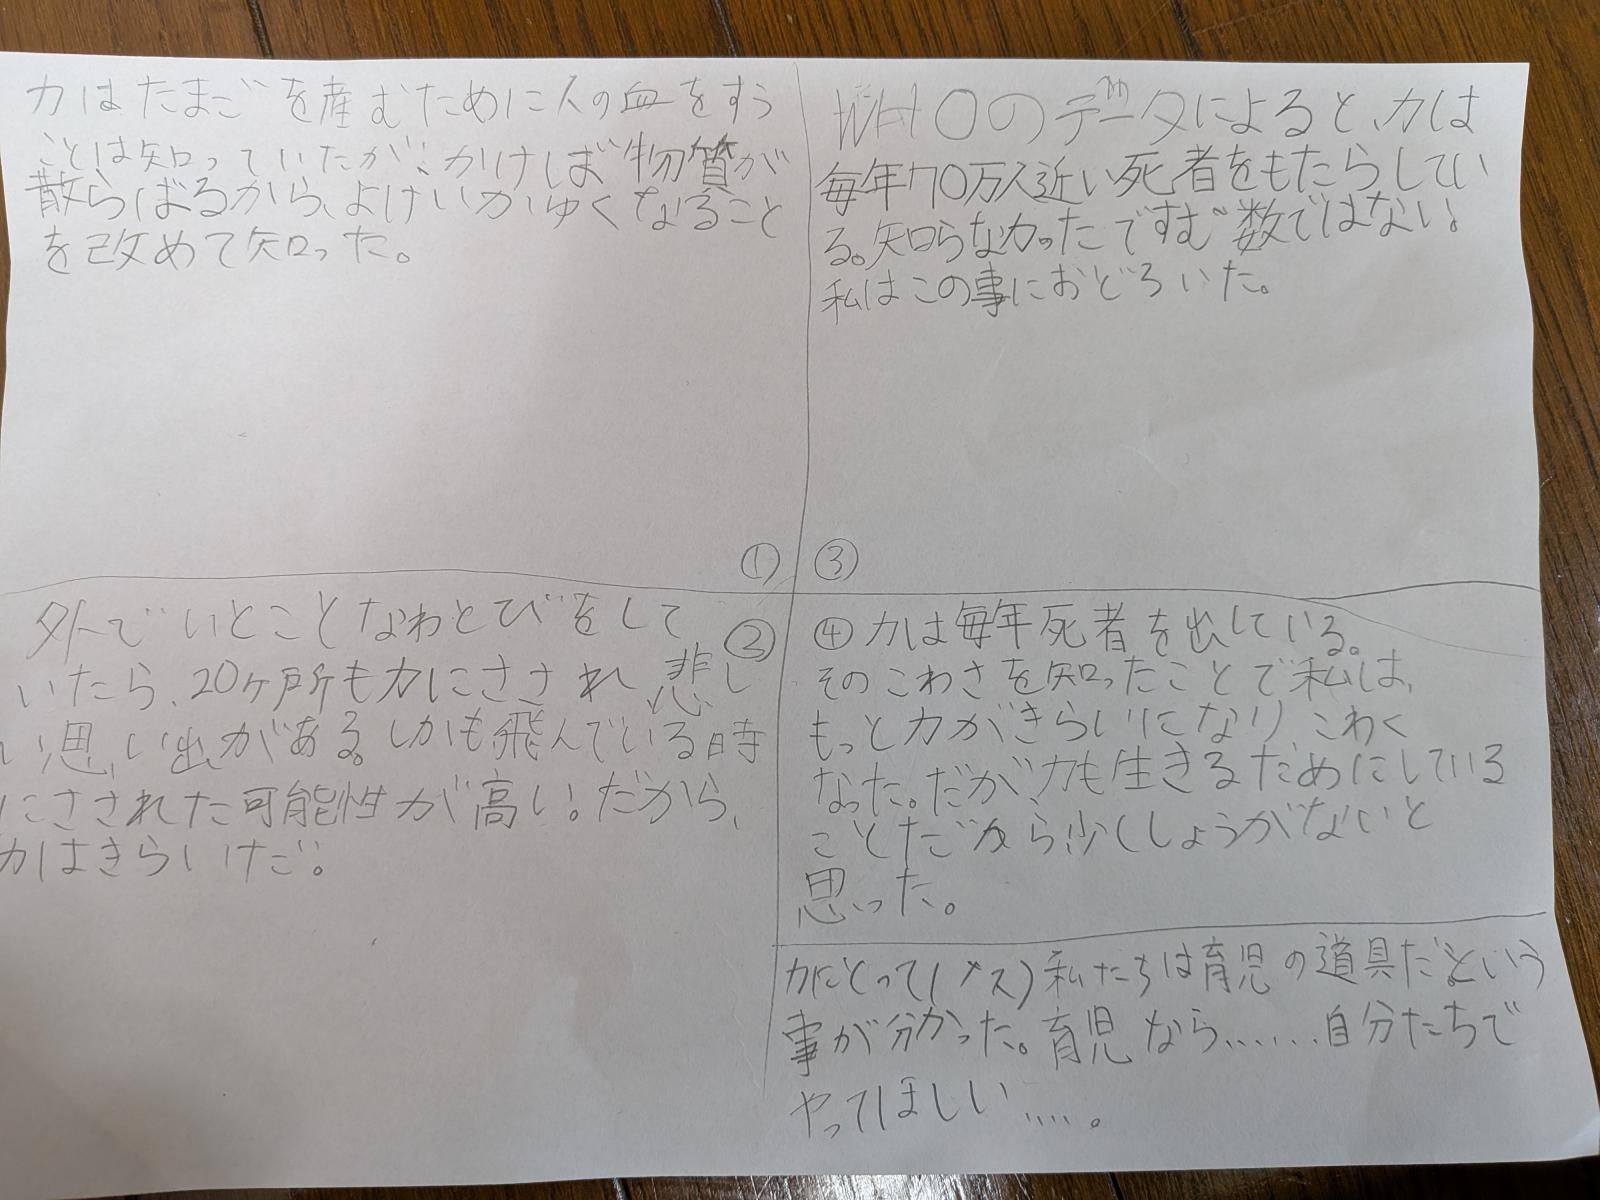 カはたまごを産むために人の血をすう
ことは知っていたが、かけば物質が
散らばるから、よけいかゆくなること
を改めて知った。
①
外でいとことなわとびをして
いたら、20ヶ所もカにさされ、悲し
い思い出がある。しかも飛んでいる時
にさされた可能性が高い。だから、
カはきらいけだ。
②
③
WHOのデータによると、カは
毎年70万人近い死者をもたらしてい
る。知らなかったですむ数ではない。
私はこの事におどろいた。
④カは毎年死者を出している。
そのこわさを知ったことで私は、
もっとカがきらいになり こわく
なった。だが、カも生きるためにしている
ことだから少ししょうがないと
思った。
カにとって(メス)私たちは育児の道具だという
事が分かった。育児なら……自分たちで
やってほしい……。